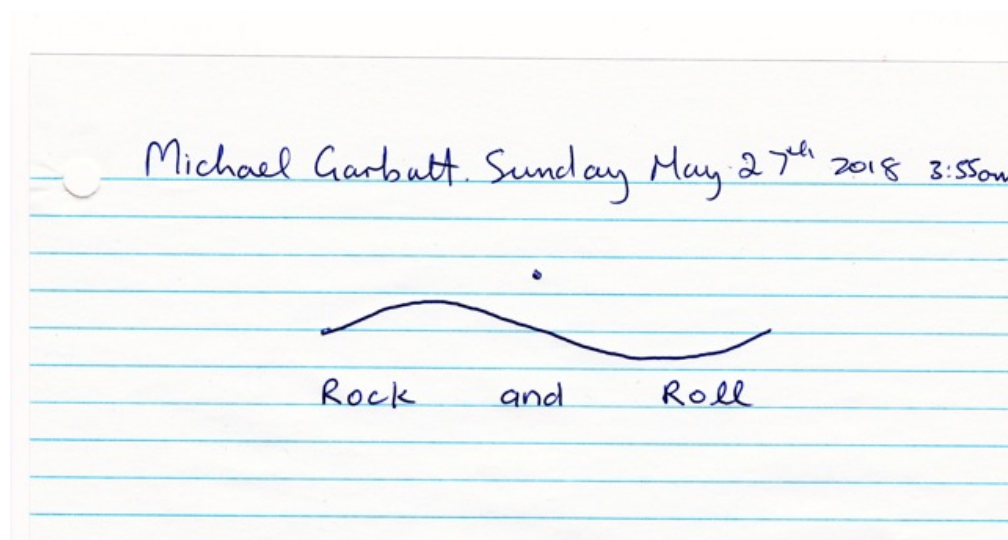 Michael Garbutt. Sunday May 27th 2018 3:55am
Rock and Roll